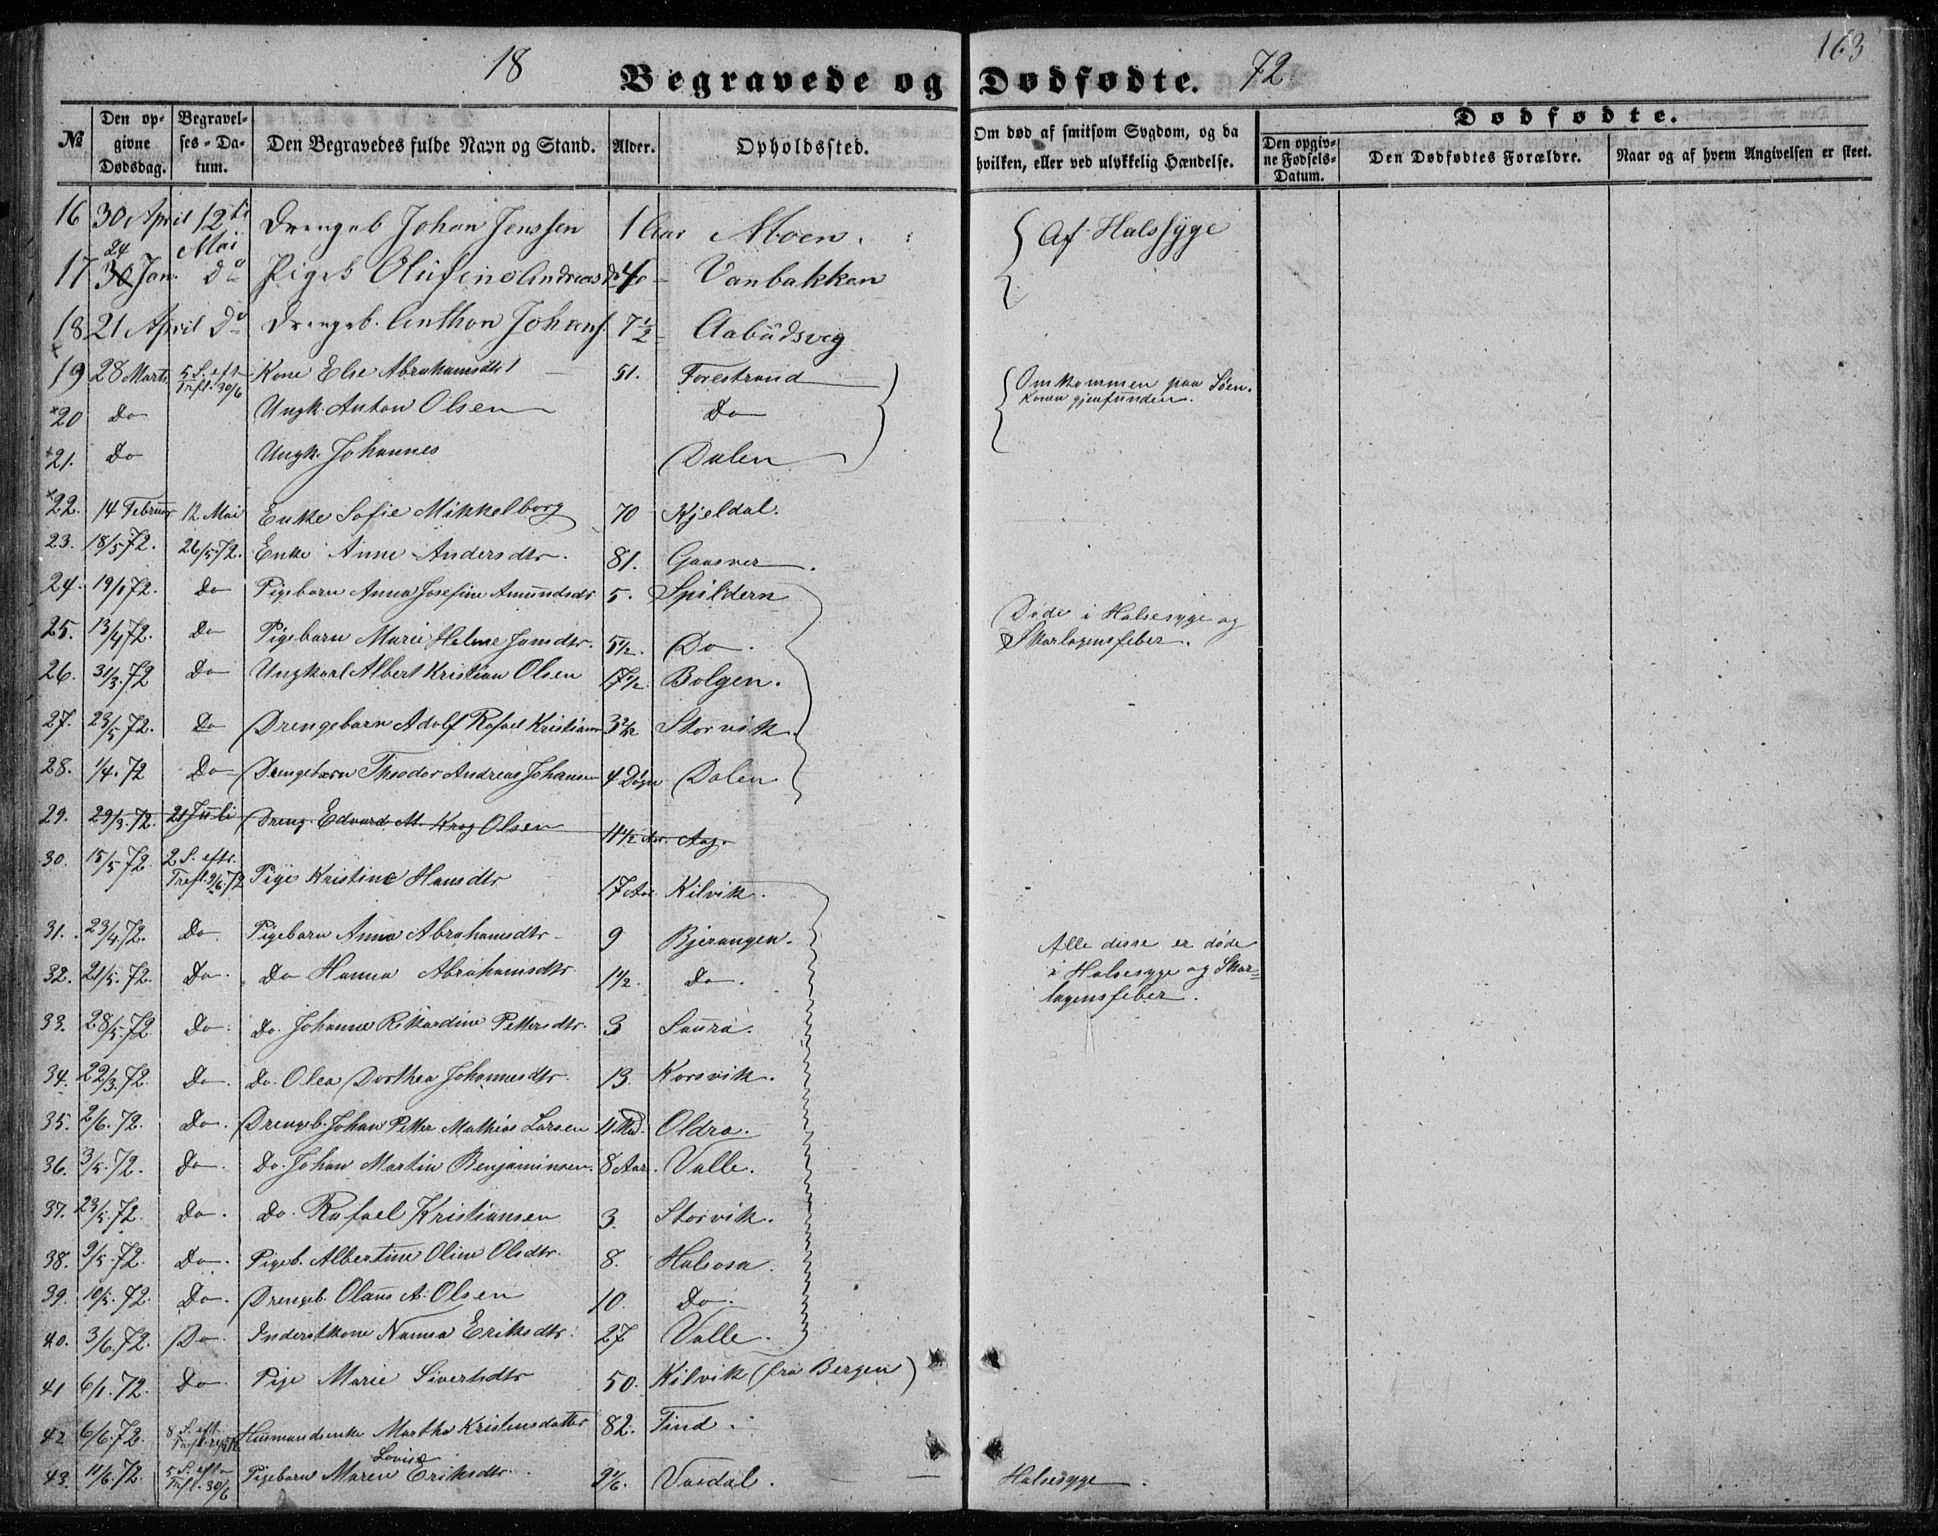 18 Begravede og Dødfødte. 72. 163
№ Den opgivne Dødsdag. Begravelses-Datum. Den Begravedes fulde Navn og Stand. Alder. Opholdssted. Om død af smitsom Sygdom, og da hvilken, eller ved ulykkelig Hændelse. Dødfødte. Den opgivne Fødsels-Datum. Den Dødfødtes Forældre. Naar og af hvem Angivelsen er skeet.
16 30 April 12te Mai Drengeb Johan Jenssen 1 Aar Moen. Af Halssyge
17 24 Jan. Do Pigeb Olufine Andreasd 4 Vanbakken
18 21 April Do Drengeb. Anthon Johans. 7 1/2 Aabudsveg
19 28 Marts 5 S. eft Tref. 30/6 Kone Else Abrahamsdtr 51. Forestrand Omkommen paa Søen. Konen gjenfunden.
20 Do Ungk. Anton Olsen Do
21. Do Ungk. Johannes Dalen
22. 14 Februar 12 Mai Enke Sofie Mikkelborg 70 Kjeldal.
23. 18/5 72. 26/5 72. Enke Anne Andersdtr. 81. Gaasver.
24. 19/1 72. Do Pigebarn Anna Josefine Amundsdtr 5. Spildern
25. 13/4 72. Do Pigebarn Marie Helene Jensdtr. 5 1/2. Do. Døde i Halsesyge og Skarlagensfeber.
26. 31/3. 72 Do Ungkarl Albert Kristian Olsen 17 1/2. Bolgen.
27. 23/5 72. Do Drengebarn Adolf Rafael Kristiansen 3 2/12 Storvik.
28. 1/4. 72 Do Drengebarn Theodor Andreas Johansen 4 Døgn Dalen
29. 29/3. 72. 21 Juli Dreng. Edvard M. Krog Olsen 4 1/2 Aar. Aag.
30. 15/5 72. 2 S. eftr. Tref. 9/6. 72 Pige Kristine Hansdtr 17 Aar Kilvik.
31. 23/4. 72. Do. Pigebarn Anna Abrahamsdtr 9 Bjerangen. Alle disse er døde i Halsesyge og Skarlagensfeber.
32. 21/5. 72. Do. Do Hanna Abrahamsdtr. 1 1/2. Do.
33. 28/5. 72 Do. Do. Johanne Rikardine Pettersdtr. 3 Saura.
34. 22/3. 72. Do. Do. Olea Dorthea Johannesdtr. 13. Korsvik.
35. 2/6. 72. Do. Drengeb. Johan Petter Mathias Larsen 11 Md. Oldra.
36. 3/5. 72. Do. Do. Johan Martin Benjaminsen. 8 Aar. Valle.
37. 23/5. 72. Do. Do. Rafael Kristiansen 3. Storvik.
38. 9/5. 72. Do. Pigeb. Albertine Oline Olsdtr. 8. Halsosa.
39. 10/5. 72. Do. Drengeb. Olaus A. Olsen 10. Do.
40. 3/6. 72. Do. Inderstkone Nanna Eriksdtr. 27 Valle.
41 6/1. 72. Do. Pige Marie Sivertsdtr 50. Kilvik (fra Bergen)
42 6/6. 72. 8 S. eft Tref. Husmandsenke Martha Kristensdatter 82. Find.
43. 11/6. 72. 5 S. eftr Tref. 30/6 Pigebarn Maren Lovise Eriksdtr. 9 1/6. Vasdal. Halsesyge.